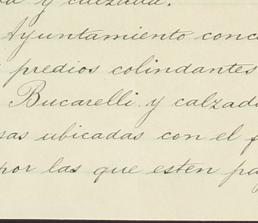 y calzada.
Ayuntamiento conc
predios colindantes
Bucarelli y calzad
sas ubicadas con el f
por las que esten pa